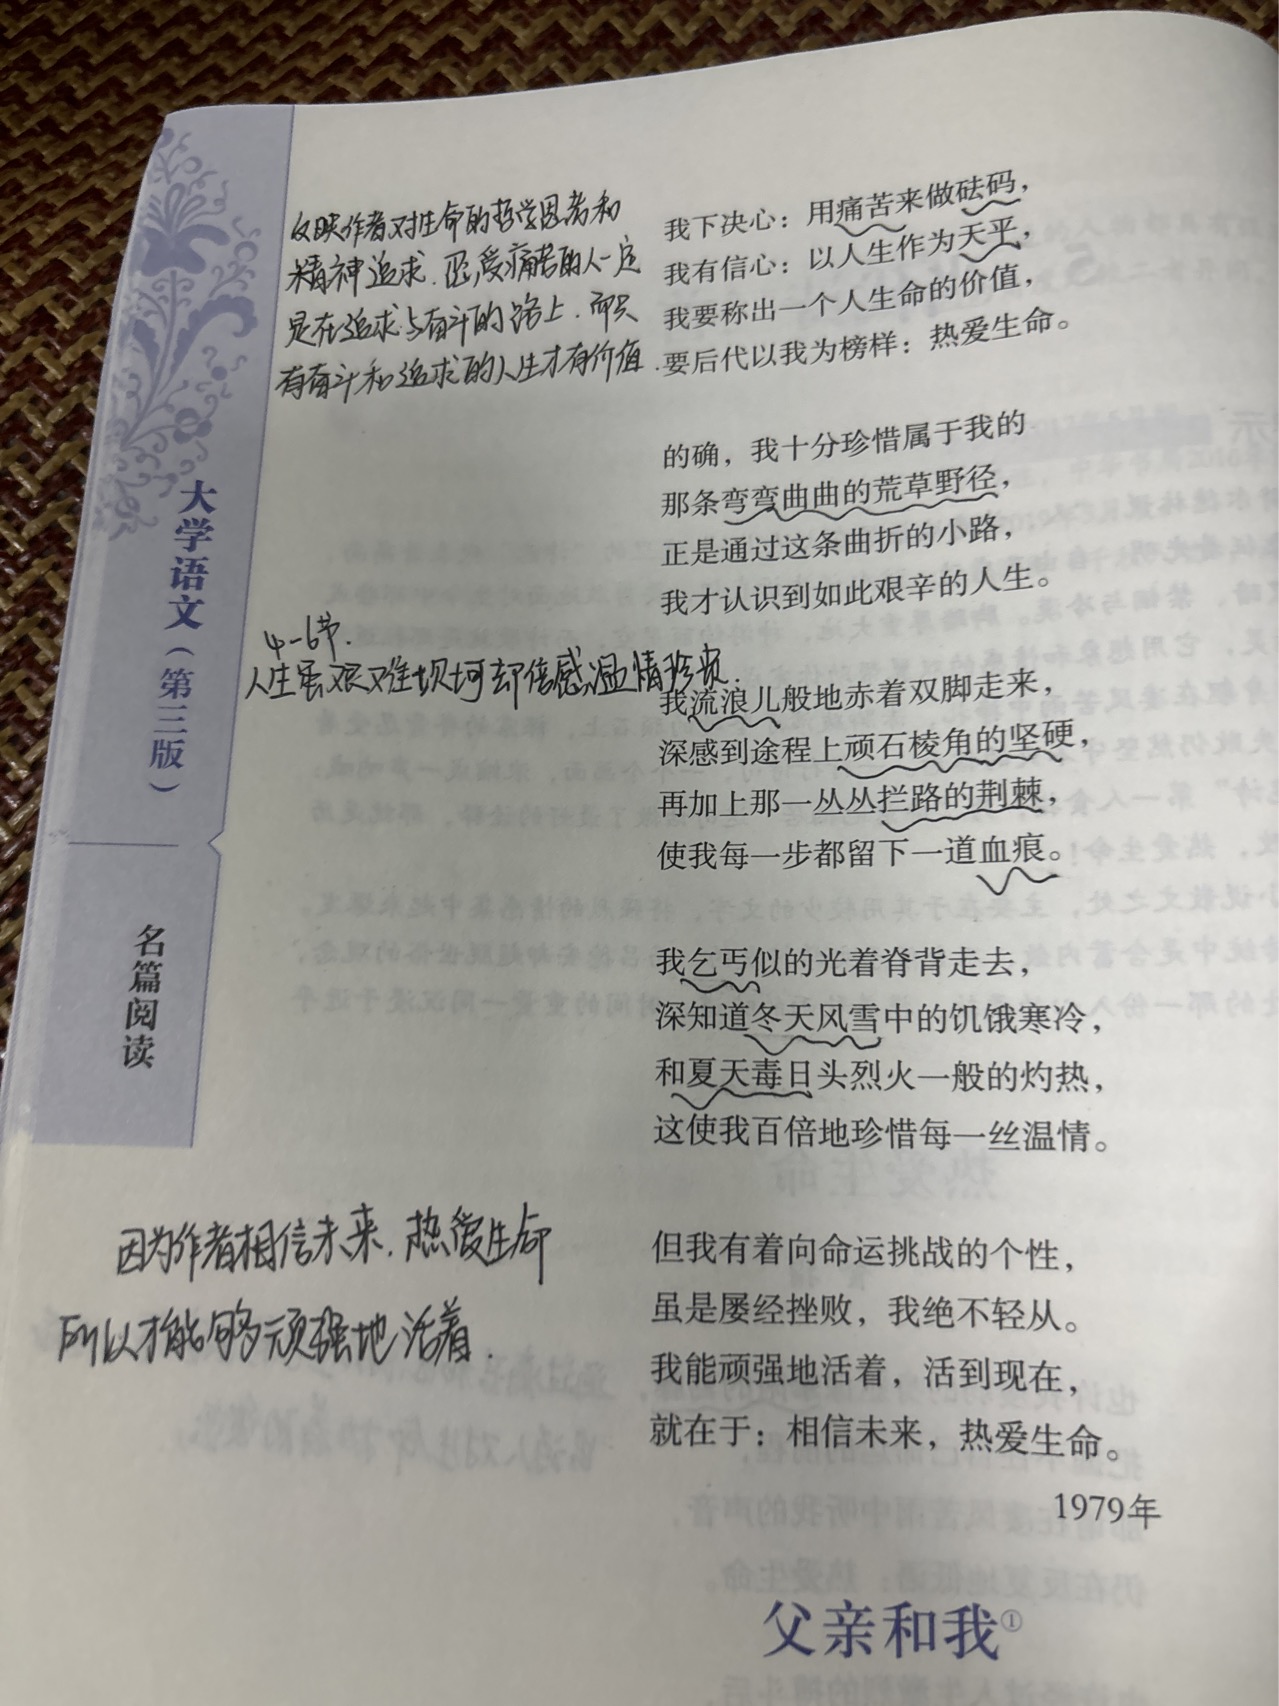 反映作者对生命的哲学思考和
精神追求.忍受痛苦的人一定
是在追求与奋斗的路上.而只
有奋斗和追求的人生才有价值.
我下决心：用痛苦来做砝码，
我有信心：以人生作为天平，
我要称出一个人生命的价值，
要后代以我为榜样：热爱生命。
的确，我十分珍惜属于我的
那条弯弯曲曲的荒草野径，
正是通过这条曲折的小路，
我才认识到如此艰辛的人生。
4-6节.
人生虽艰难坎坷却倍感温情珍贵.
我流浪儿般地赤着双脚走来，
深感到途程上顽石棱角的坚硬，
再加上那一丛丛拦路的荆棘，
使我每一步都留下一道血痕。
我乞丐似的光着脊背走去，
深知道冬天风雪中的饥饿寒冷，
和夏天毒日头烈火一般的灼热，
这使我百倍地珍惜每一丝温情。
因为作者相信未来.热爱生命
所以才能够顽强地活着.
但我有着向命运挑战的个性，
虽是屡经挫败，我绝不轻从。
我能顽强地活着，活到现在，
就在于：相信未来，热爱生命。
1979年
父亲和我①
大学语文（第三版）
名篇阅读